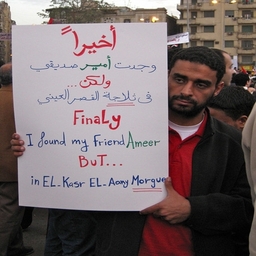 أخيراً
وجدت أمير صديقي
ولكن...
في ثلاجة القصر العيني
Finaly
I found my friend Ameer
BuT...
in EL-Kasr EL-Aony Morgue